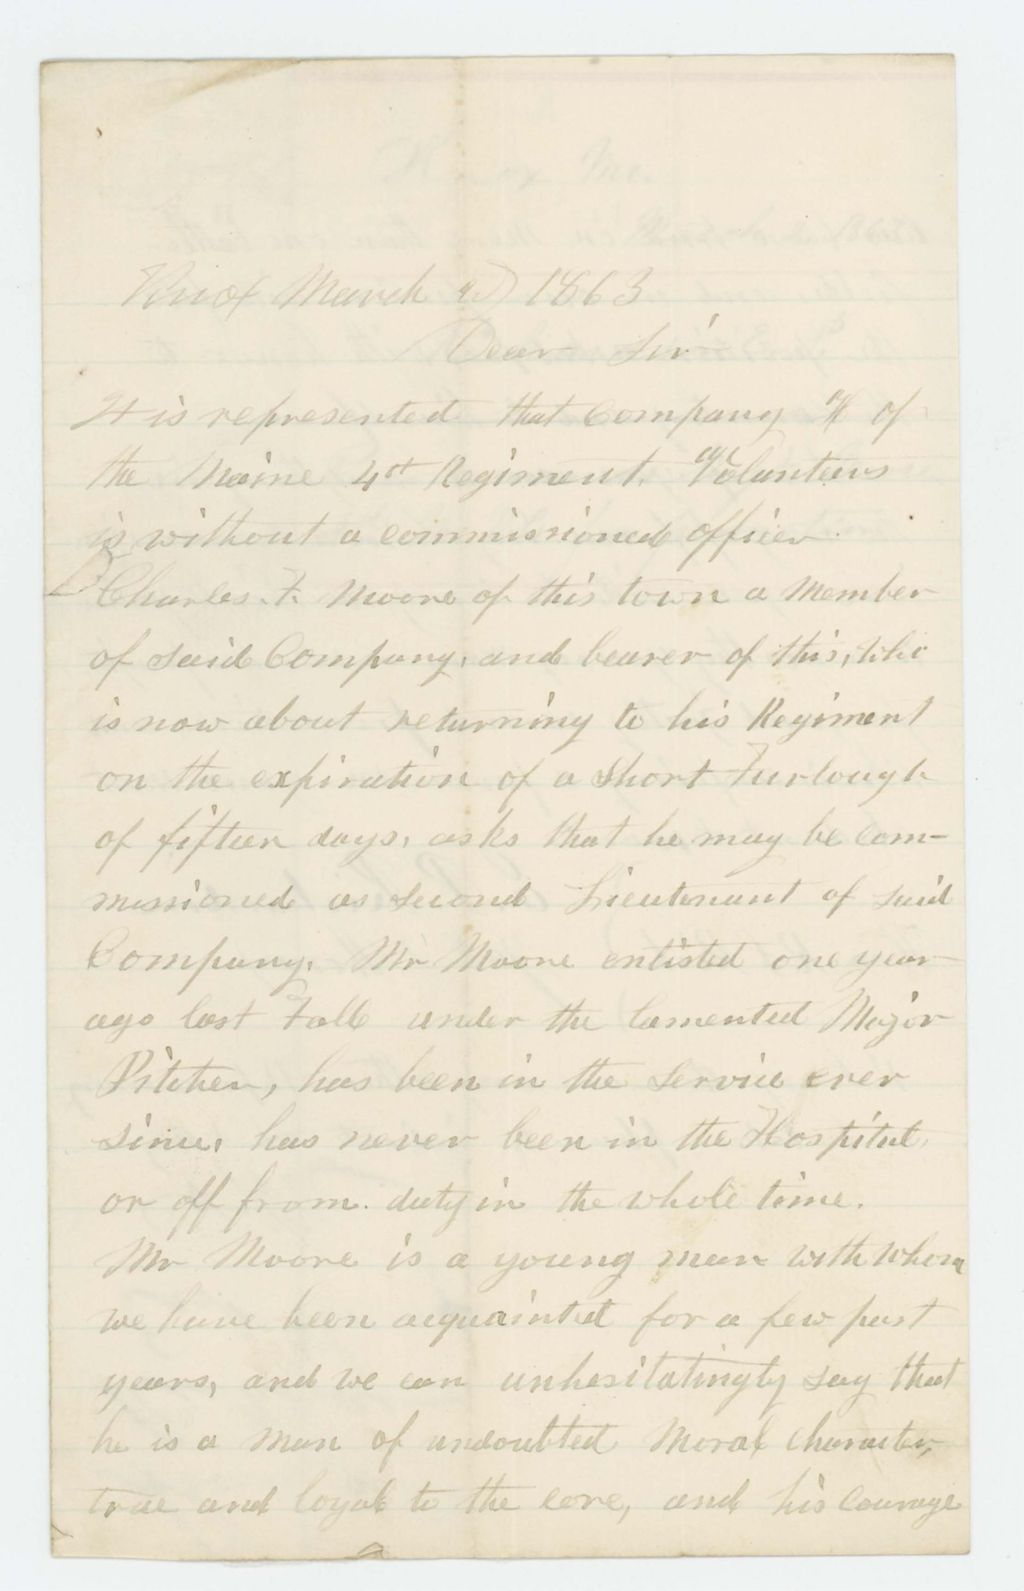 Knox March 1863
Dear Sir
It is represented that Company of
the Maine 4th Regiment. Volunteers
is without a commissioned officer.
Charles. F. Moore of this town a Member
of said Company, and bearer of this, who
is now about returning to his Regiment
on the expiration of a short Furlough
of fifteen days, asks that he may be com-
missioned as second Lieutenant of said
Company. Mr Moore enlisted one year
ago last Fall under the lamented Major
Pitcher, has been in the service ever
since, has never been in the Hospital,
or off from. duty in the whole time.
Mr Moore is a young man with whom
we have been acquainted for a few past
years, and we can unhesitatingly say that
he is a man of undoubted Moral character,
true and loyal to the core, and his courage